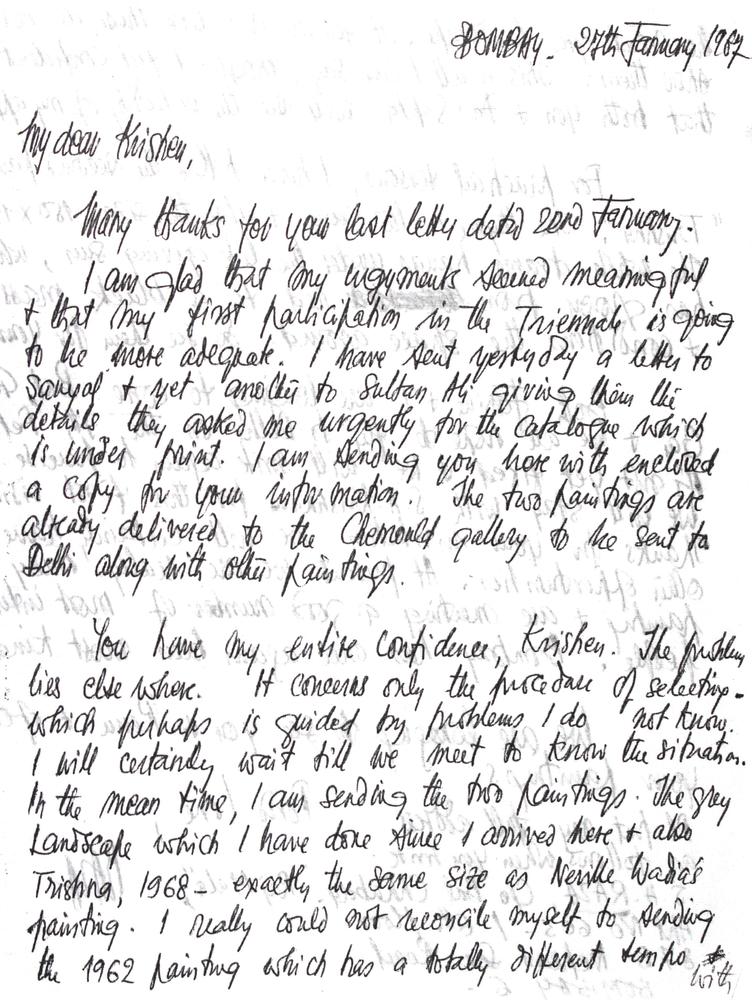 BOMBAY. 27th January 1967
My dear Krishen,
Many thanks for your last letter dated 22nd January.
I am glad that my arguments seemed meaningful
+ that my first participation in the Triennale is going
to be more adequate. I have sent yesterday a letter to
Sanyal + yet another to Sultan Ali giving them the
details they asked me urgently for the catalogue which
is under print. I am sending you here with enclosed
a copy for your information. The two paintings are
already delivered to the Chemould gallery to be sent to
Delhi along with other paintings.
You have my entire confidence, Krishen. The problem
lies else where. It concerns only the procedure of selecting-
which perhaps is guided by problems I do not know.
I will certainly wait till we meet to know the situation.
In the mean time, I am sending the two paintings. The grey
Landscape which I have done since I arrived here + also
Trishna, 1968 - exactly the same size as Neville Wadia's
painting. I really could not reconcile myself to sending
the 1962 painting which has a totally different tempo
with